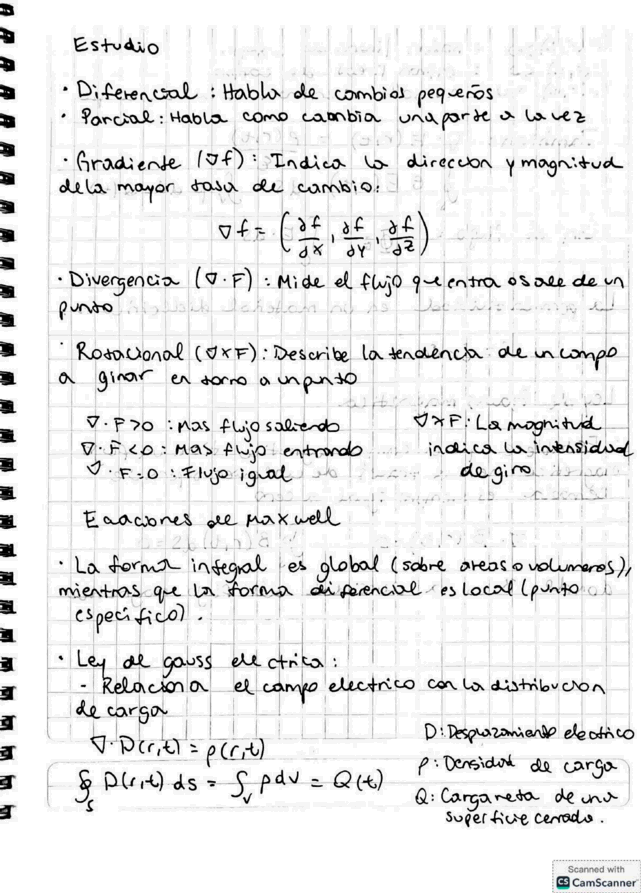 Estudio
· Diferencial : Habla de cambios pequeños
· Parcial : Habla como cambia una parte a la vez
· Gradiente (∇f) : Indica la direccion y magnitud
de la mayor tasa de cambio:
∇f = (∂f/∂x, ∂f/∂y, ∂f/∂z)
· Divergencia (∇·F) : Mide el flujo que entra o sale de un
punto
· Rotacional (∇×F) : Describe la tendencia de un campo
a girar en torno a un punto
∇·F>0 : Mas flujo saliendo
∇·F<0 : Mas flujo entrando
∇·F=0 : Flujo igual
∇×F : La magnitud
indica la intensidad
de giro
Ecuaciones de Maxwell
· La forma integral es global (sobre areas o volumenes),
mientras que la forma diferencial es local (punto
especifico).
· Ley de gauss electrica :
- Relaciona el campo electrico con la distribucion
de carga
∇·D(r,t) = ρ(r,t)
∮s D(r,t) ds = ∫v ρdv = Q(t)
D: Desplazamiento electrico
ρ: Densidad de carga
Q: Carga neta de una
superficie cerrada.
Scanned with
CS CamScanner